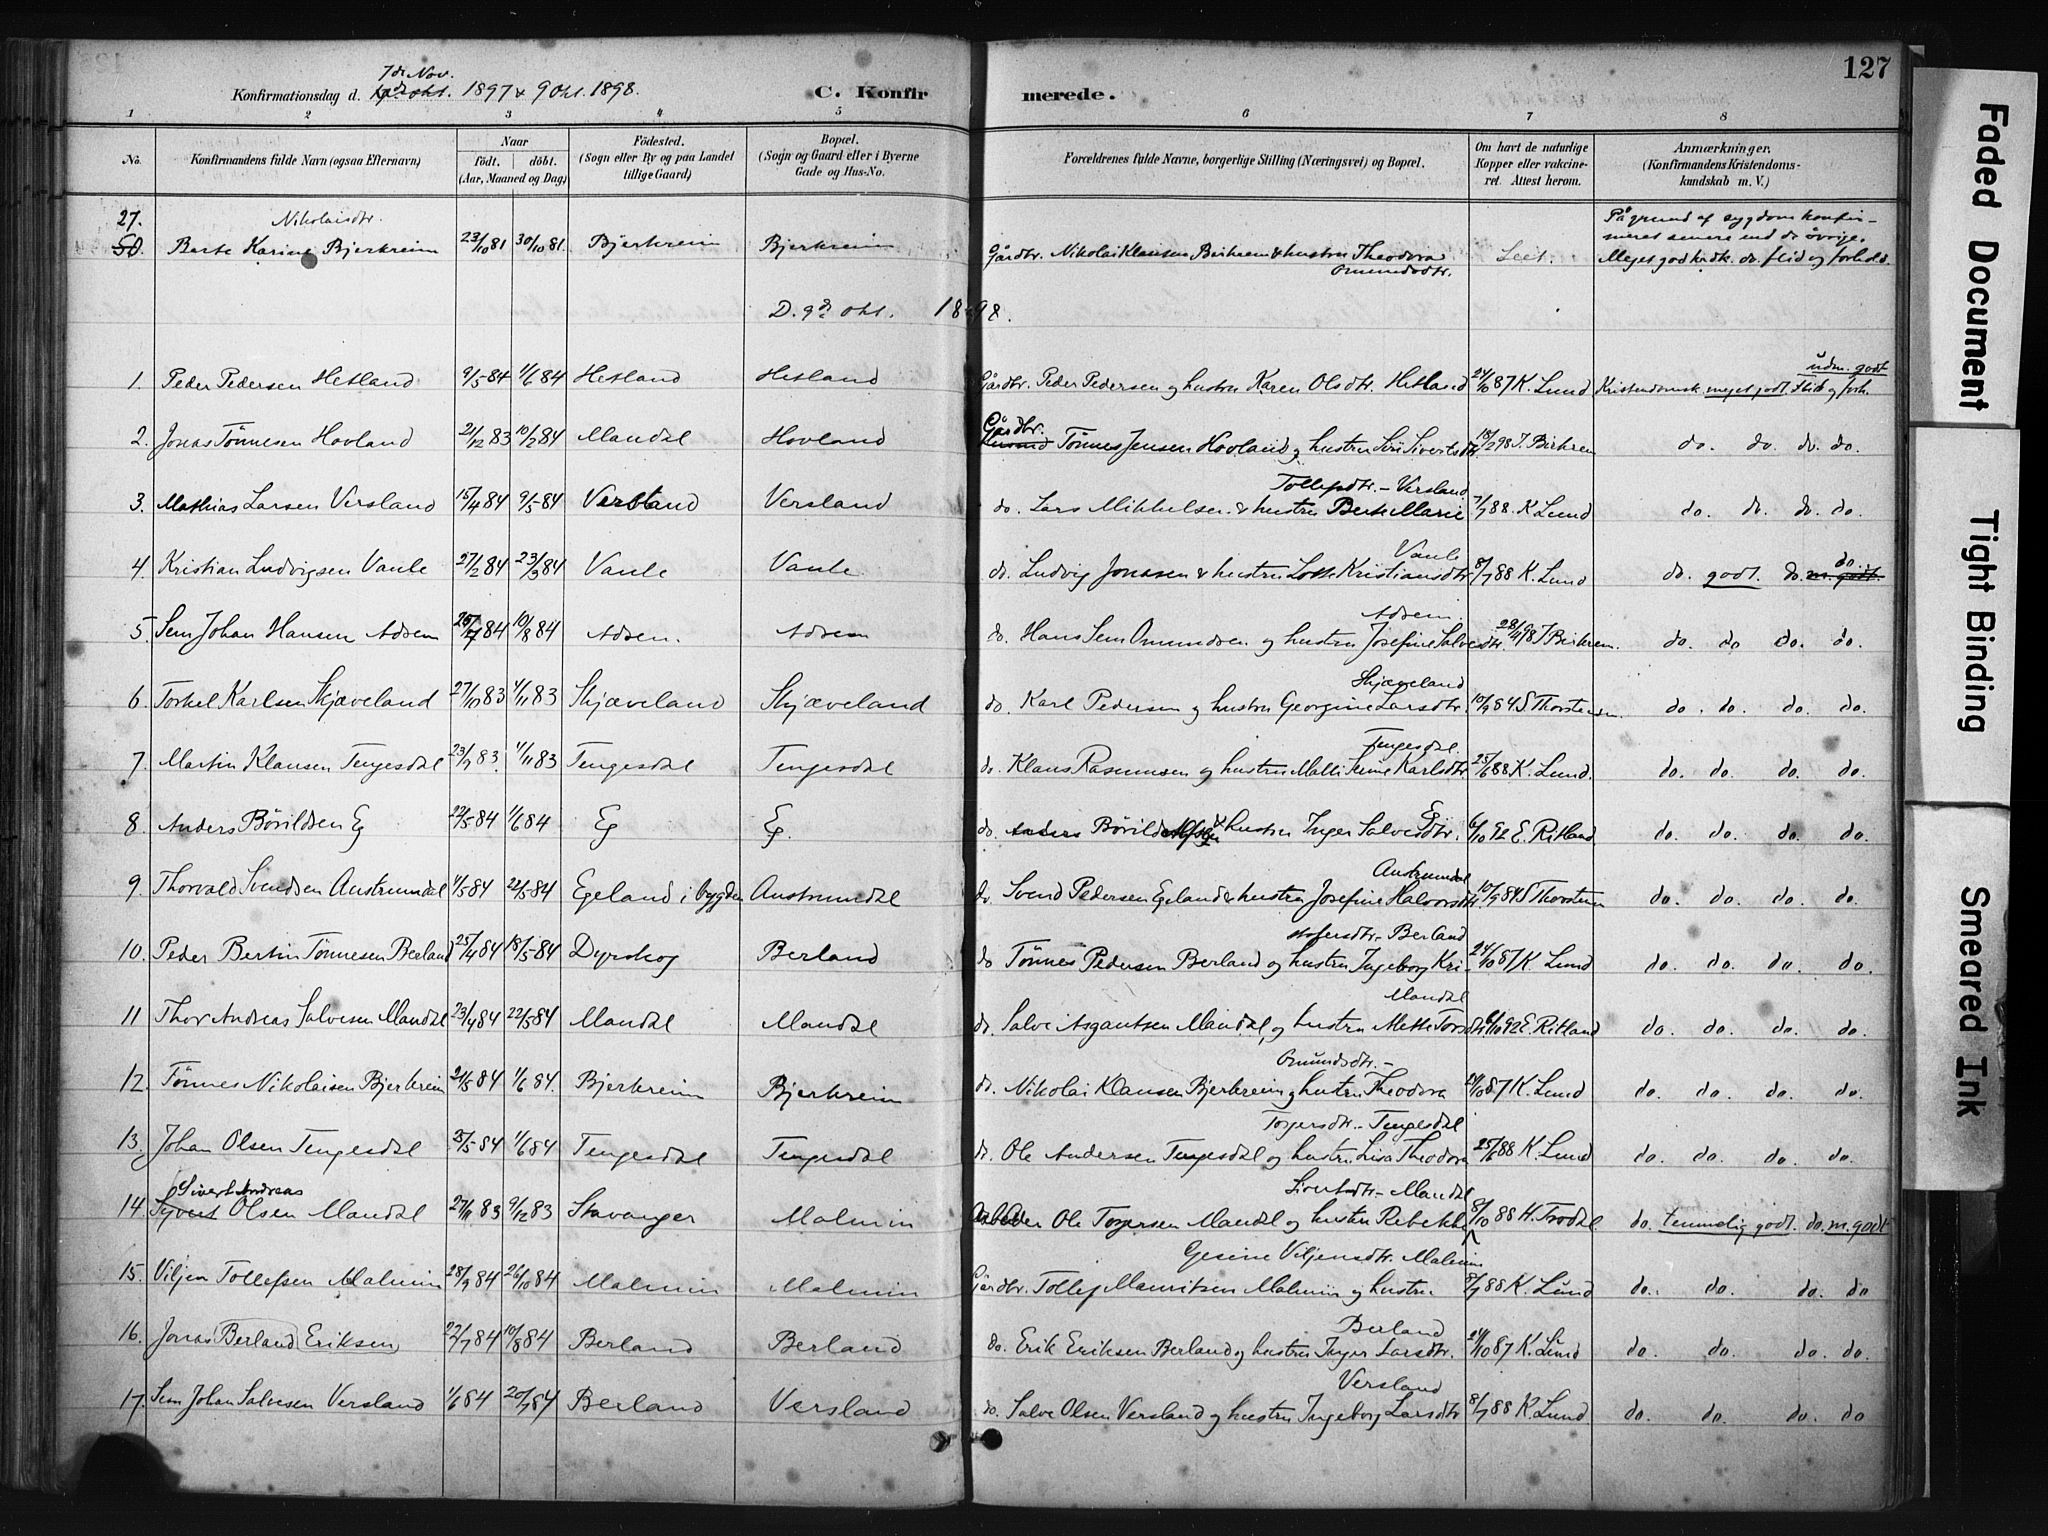 127
Konfirmationsdag d. 7de Nov. 1897 & 9 Okt. 1898.
C. Konfirmerede.
1 2 3 4 5 6 7 8
No. Konfirmandens fulde Navn (ogsaa Efternavn) Naar født. døbt. (Aar, Maaned og Dag) Födested. (Sogn eller By og paa Landet tillige Gaard) Bopæl. (Sogn og Gaard eller i Byerne Gade og Hus-No. Forældrenes fulde Navne, borgerlige Stilling (Næringsvei) og Bopæl. Om havt de naturlige Kopper eller vakcineret. Attest herom. Anmærkninger. (Konfirmandens Kristendomskundskab m. V.)
27. Nikolaisdtr. På grund af sygdom konfir-
Berte Karine Bjerkreim 23/10 81 30/10 81. Bjerkreim Bjerkreim Gårdbr. Nikolai Klausen Birkrem & hustru Theodora Omundsdtr. meret senere end de øvrige. Meget god krdk. do. flid og forhold.
D. 9de Okt. 1898.
1. Peder Pedersen Hetland 9/5 84 1/6 84 Hetland Hetland Gårdbr. Peder Pedersen og hustru Karen Olsdtr. Hetland 24/10 87 K. Lund Kristendomsk. meget godt. Flid og forh. udm. godt
2. Jonas Tönnesen Hovland 21/12 83 10/2 84 Mandal Hovland Gårdbr. Tönnes Jensen Hovland og hustru Siri Sivertsdtr. 18/2 98 T. Birkrem do. do. do. do.
3. Mathias Larsen Versland 15/4 84 9/5 84 Versland Versland do. Lars Mikkelsen & hustru Berte Marie Tollefsdtr. - Versland 7/7 88. K Lund do. do. do. do.
4. Kristian Ludvigsen Vaule 27/2 84 23/3 84 Vaule Vaule do. Ludvig Jonassen & hustru Lott. Kristiansdtr. Vaule 8/7 88 K. Lund do. godt. do. do.
5. Sem Johan Hansen Adsem 25/7 84 10/8 84 Adsem. Adsem do. Hans Sem Omundsen og hustru Josefine Salvesdtr. Adsem. 28/4 98 T Birkrem. do. do do. do.
6. Torkel Karlsen Skjæveland 27/10 83 4/11 83 Skjæveland Skjæveland do. Karl Pedersen og hustru Georgine Larsdtr. Skjæveland 10/9 84 S Thorstensen. do. do. do. do.
7. Martin Klausen Tengesdal 23/9 83. 4/11 83 Tengesdal Tengesdal do. Klaus Rasmussen og hustru Malli Serine Karlsdtr. Tengesdal. 25/6 88 K. Lund. do. do. do. do.
8. Anders Börildsen Eg 22/5 84 1/6 84 Eg Eg. do. Böril & hustru Inger Salvesdtr. Eg 6/10 92 E. Ritland do. do. do. do.
9. Thorvald Svendsen Austrumdal 4/5 84 22/5 84 Egeland i bygden Austrumdal do. Svend Pedersen Egeland & hustru Josefine Halvorsdtr. Austrumdal 10/9 84 S Thorstensen do. do. do. do.
10. Peder Bertin Tönnesen Berland 25/4 84 18/5 84 Dyrskog Berland do Tönnes Pedersen Berland og hustru Ingeborg Kristofersdtr. Berland 24/10 87 K. Lund do. do. do. do.
11 Thor Andreas Salvesen Mandal 23/4 84 22/5 84 Mandal Mandal do. Salve Asgautsen Mandal, og hustru Mette Torsdtr. Mandal 6/10 92 E. Ritland do. do. do. do.
12. Tönnes Nikolaisen Bjerkreim 21/5 84 1/6 84. Bjerkreim Bjerkreim do. Nikolai Klausen Bjerkreim og hustru Theodora Omundsdtr. - 24/10 87 K. Lund do. do. do. do.
13. Johan Olsen Tengesdal 25/5 84 1/6 84 Tengesdal Tengesdal do. Ole Andersen Tengesdal og hustru Lisa Theodora Torgersdtr. - Tengesdal 25/6 88 K. Lund do. do. do. do.
14. Sivert Andreas Olsen Mandal 27/11 83 9/12 83 Stavanger Malmin Arbeider Ole Torgersen Mandal og hustru Rebekka Sivertsdtr. - Mandal 8/10 88 H. Trodal. do. temmelig godt. do. m. godt
15. Viljem Tollefsen Malmin 28/9 84 26/10 84 Malmin Malmin Gårdbr. Tollef Mauritsen Malmin og hustru Gesine Viljemsdtr. Malmin 8/7 88 K. Lund do. do. do. do
16. Jonas Berland Eriksen 22/7 84 10/8 84 Berland Berland do. Erik Eriksen Berland og hustru Inger Larsdtr. Berland 24/10 87 K. Lund do. do. do. do.
17. Sem Johan Salvesen Versland 1/6 84 20/7 84 Berland Versland do. Salve Olsen Versland og hustru Ingeborg Larsdtr Versland 8/7 88 K. Lund do. do. do. do
Faded Document
Tight Binding
Smeared Ink